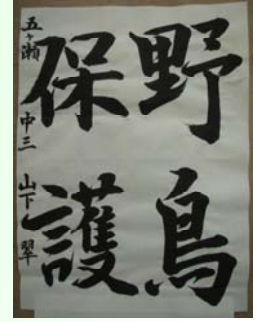 野鳥
保護
五ヶ瀬 中三 山下 翠